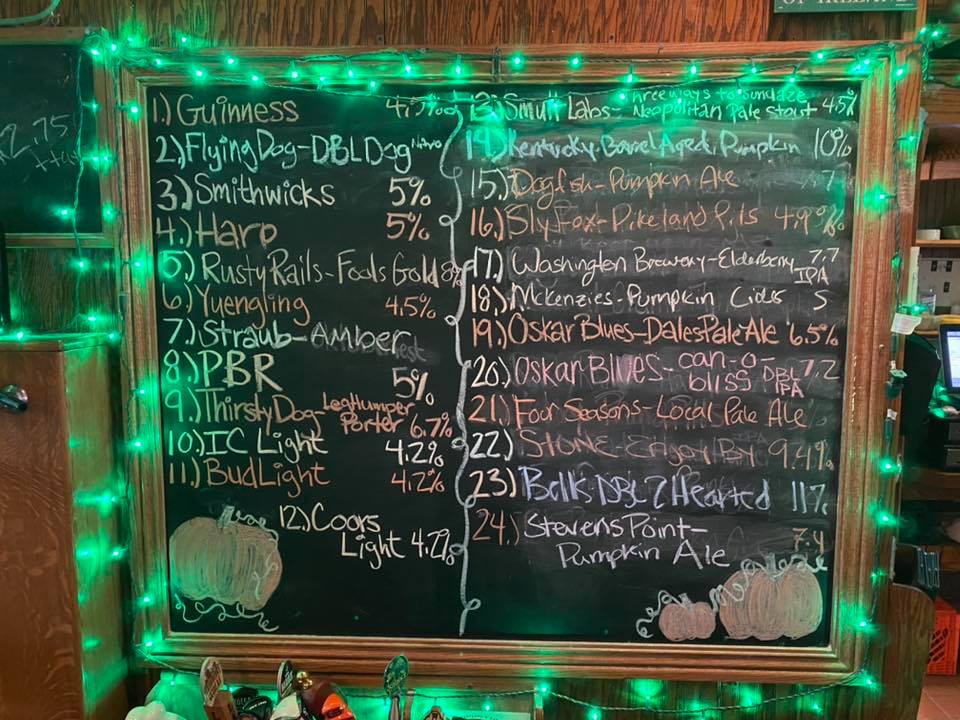 OF IRELAND
2.75
1.) Guinness
2.) Flying Dog-DBL Dog
3.) Smithwicks 5%
4.) Harp 5%
5.) Rusty Rails-Fools Gold 8%
6.) Yuengling 4.5%
7.) Straub-Amber
8.) PBR 5%
9.) Thirsty Dog-Leg Humper
Porter 6.7%
10.) IC Light 4.2%
11.) Bud Light 4.2%
12.) Coors
Light 4.2%
13.) Smutt Labs- Three ways to Sundaze
Neopolitan Pale Stout 4.5%
14.) Kentucky-Barrel Aged Pumpkin 10%
15.) Dogfish-Pumpkin Ale 7
16.) Sly Fox-Pikeland Pils 4.9%
17.) Washington Brewery-Elderberry 7.7
IPA
18.) Mckenzies-Pumpkin Cider 5
19.) Oskar Blues-Dales Pale Ale 6.5%
20.) Oskar Blues-can-o-
bliss DBL IPA 7.2
21.) Four Seasons-Local Pale Ale
22.) Stone-Enjoy By 9.4%
23.) Bells DBL 2 Hearted 11%
24.) Stevens Point-
Pumpkin Ale 7.4